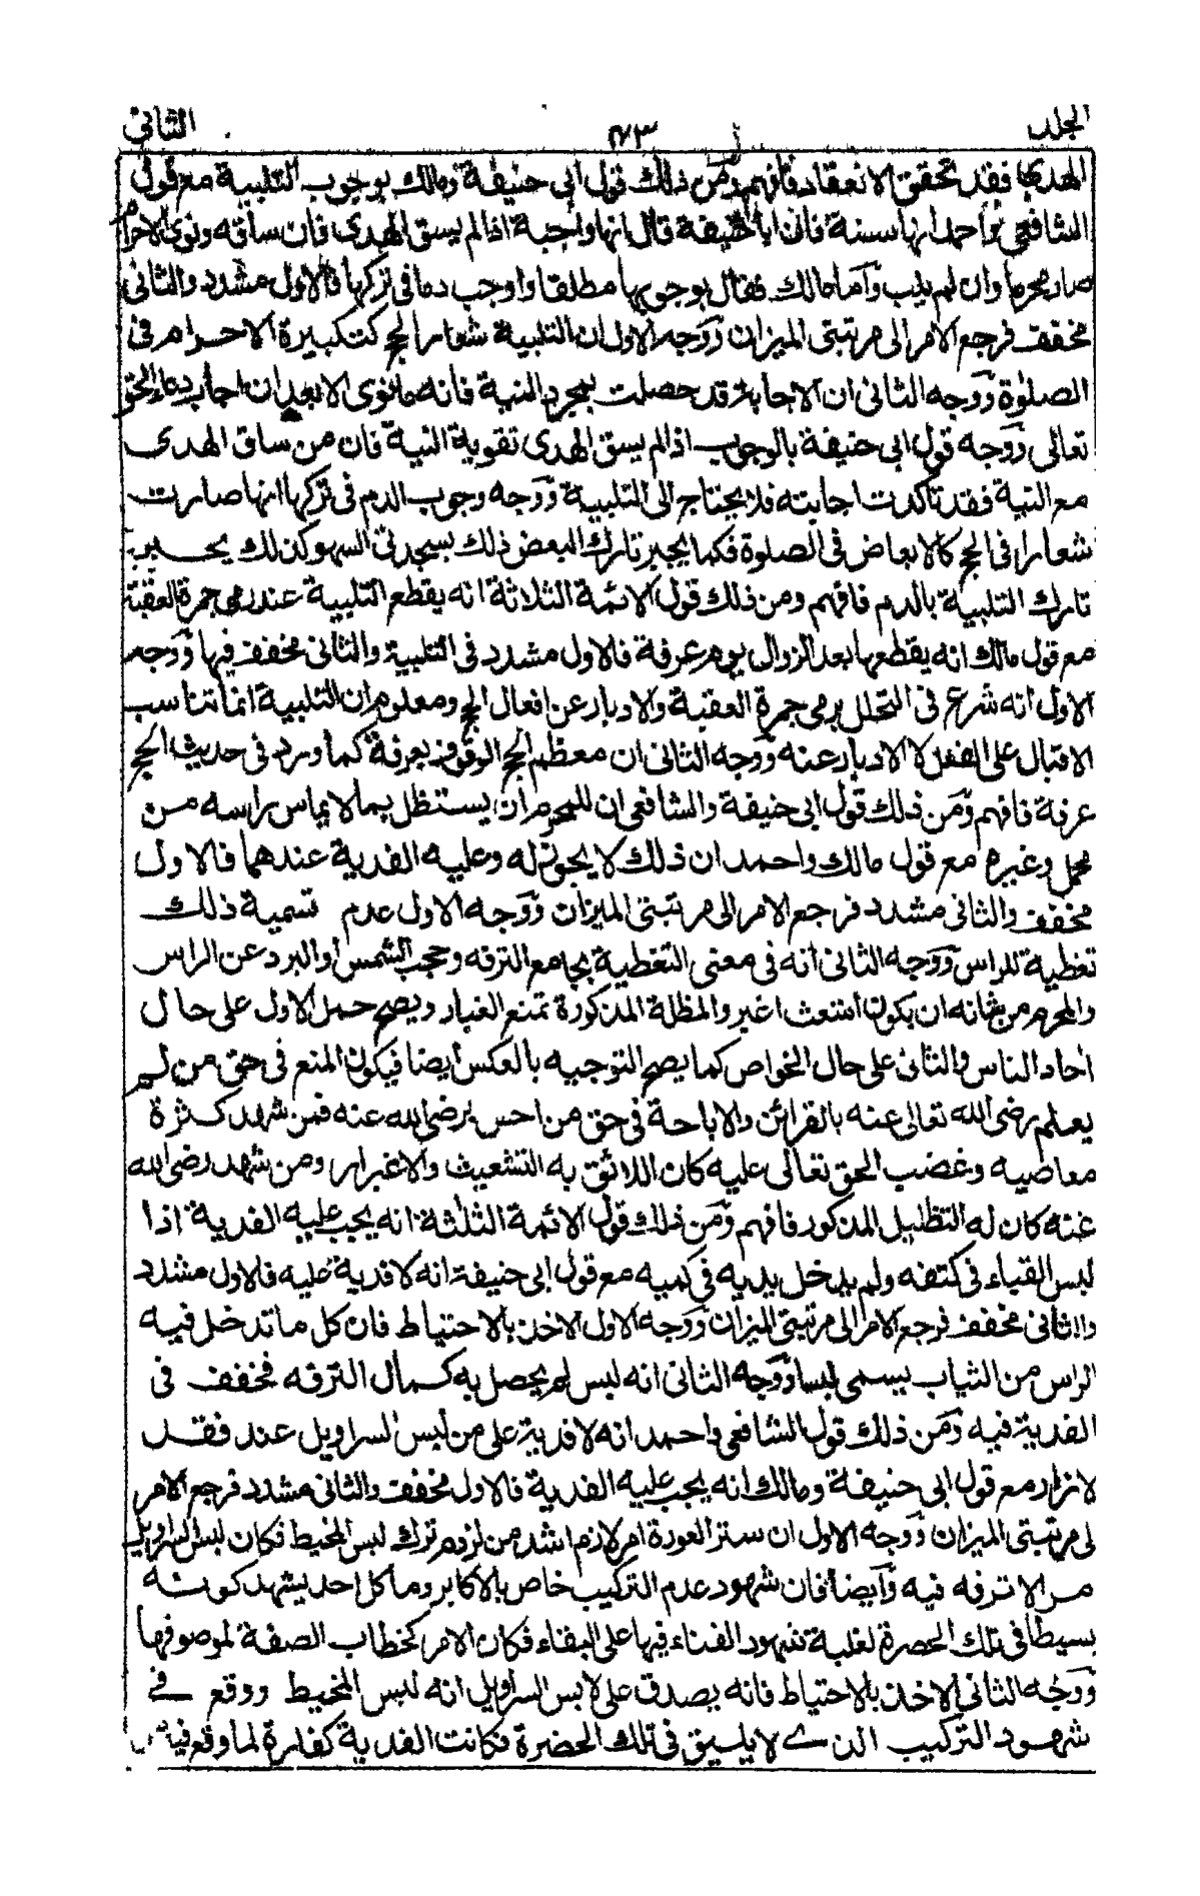 الجلد ٧٣ الثاني
الهدي فقد تحقق الانعقاد فافهم ومن ذلك قول ابى حنيفة ومالك بوجوب التلبية مع قول
الشافعي واحمد انها سنة فان ابا حنيفة قال انها واجبة اذا لم يسق الهدى فان ساقه ونوى الاحرام
صار محرما وان لم يلب وأما مالك فقال بوجوبها مطلقا واوجب دما فى تركها فالاول مشدد والثانى
مخفف فرجع الامر الى مرتبتى الميزان ووجه الاول ان التلبية شعار الحج كتكبيرة الاحرام فى
الصلوة ووجه الثانى ان الاجابة قد حصلت بمجرد النية فانه ما نوى الا بعد ان اجاب دعاء الحق
تعالى ووجه قول ابى حنيفة بالوجوب اذا لم يسق الهدى تقوية النية فان من ساق الهدى
مع النية فقد تأكدت اجابته فلا يحتاج الى التلبية ووجه وجوب الدم فى تركها انها صارت
شعارا فى الحج كالابعاض فى الصلوة فكما يجبر تارك البعض ذلك بسجدتى السهو كذلك يجبر
تارك التلبية بالدم فافهم ومن ذلك قول الائمة الثلاثة انه يقطع التلبية عند رمى جمرة العقبة
مع قول مالك انه يقطعها بعد الزوال يوم عرفة فالاول مشدد فى التلبية والثانى مخفف فيها ووجه
الاول انه شرع فى التحلل برمى جمرة العقبة والادبار عن افعال الحج ومعلوم ان التلبية انما تناسب
الاقبال على الفعل لا الادبار عنه ووجه الثانى ان معظم الحج الوقوف بعرفة كما ورد فى حديث الحج
عرفة فافهم ومن ذلك قول ابى حنيفة والشافعى ان للمحرم ان يستظل بما لا يماس راسه من
محمل وغيره مع قول مالك واحمد ان ذلك لا يجوز له وعليه الفدية عندهما فالاول
مخفف والثانى مشدد فرجع الامر الى مرتبتى الميزان ووجه الاول عدم تسمية ذلك
تغطية للراس ووجه الثانى انه فى معنى التغطية بجامع الترفه وحجب الشمس او البرد عن الراس
والمحرم من شانه ان يكون اشعث اغبر والمظلة المذكورة تمنع الغبار ويصح حمل الاول على حال
احاد الناس والثانى على حال الخواص كما يصح التوجيه بالعكس أيضا فيكون المنع فى حق من لم
يعلم رضى الله تعالى عنه بالقرائن والاباحة فى حق من احس برضى الله عنه فمن شهد كثرة
معاصيه وغضب الحق تعالى عليه كان اللائق به التشعيث والاغبرار ومن شهد رضى الله
عنه كان له التظليل المذكور فافهم ومن ذلك قول الائمة الثلثة انه يجب عليه الفدية اذا
لبس القباء فى كتفه ولم يدخل يديه فى كميه مع قول ابى حنيفة انه لا فدية عليه فالاول مشدد
والثانى مخفف فرجع الامر الى مرتبتى الميزان ووجه الاول الاخذ بالاحتياط فان كل ما تدخل فيه
الراس من الثياب يسمى لبسا ووجه الثانى انه لبس لم يحصل به كمال الترفه فخفف فى
الفدية فيه ومن ذلك قول الشافعى واحمد انه لا فدية على من لبس السراويل عند فقد
لازار مع قول ابى حنيفة ومالك انه يجب عليه الفدية فالاول مخفف والثانى مشدد فرجع الامر
لى مرتبتى الميزان ووجه الاول ان ستر العورة امر لازم اشد من لزوم ترك لبس المخيط فكان لبس السراويل
مر لا ترفه فيه وأيضا فان شهود عدم التركيب خاص بالاكابر وما كل احد يشهد كونه
بسيطا فى تلك الحضرة لغلبة شهود الفناء فيها على البقاء فكان الامر كخطاب الصفة لموصوفها
ووجه الثانى الاخذ بالاحتياط فانه يصدق على لابس السراويل انه لبس المخيط ووقع فى
شهود التركيب الذى لا يليق فى تلك الحضرة فكانت الفدية كفارة لما وقع فيه